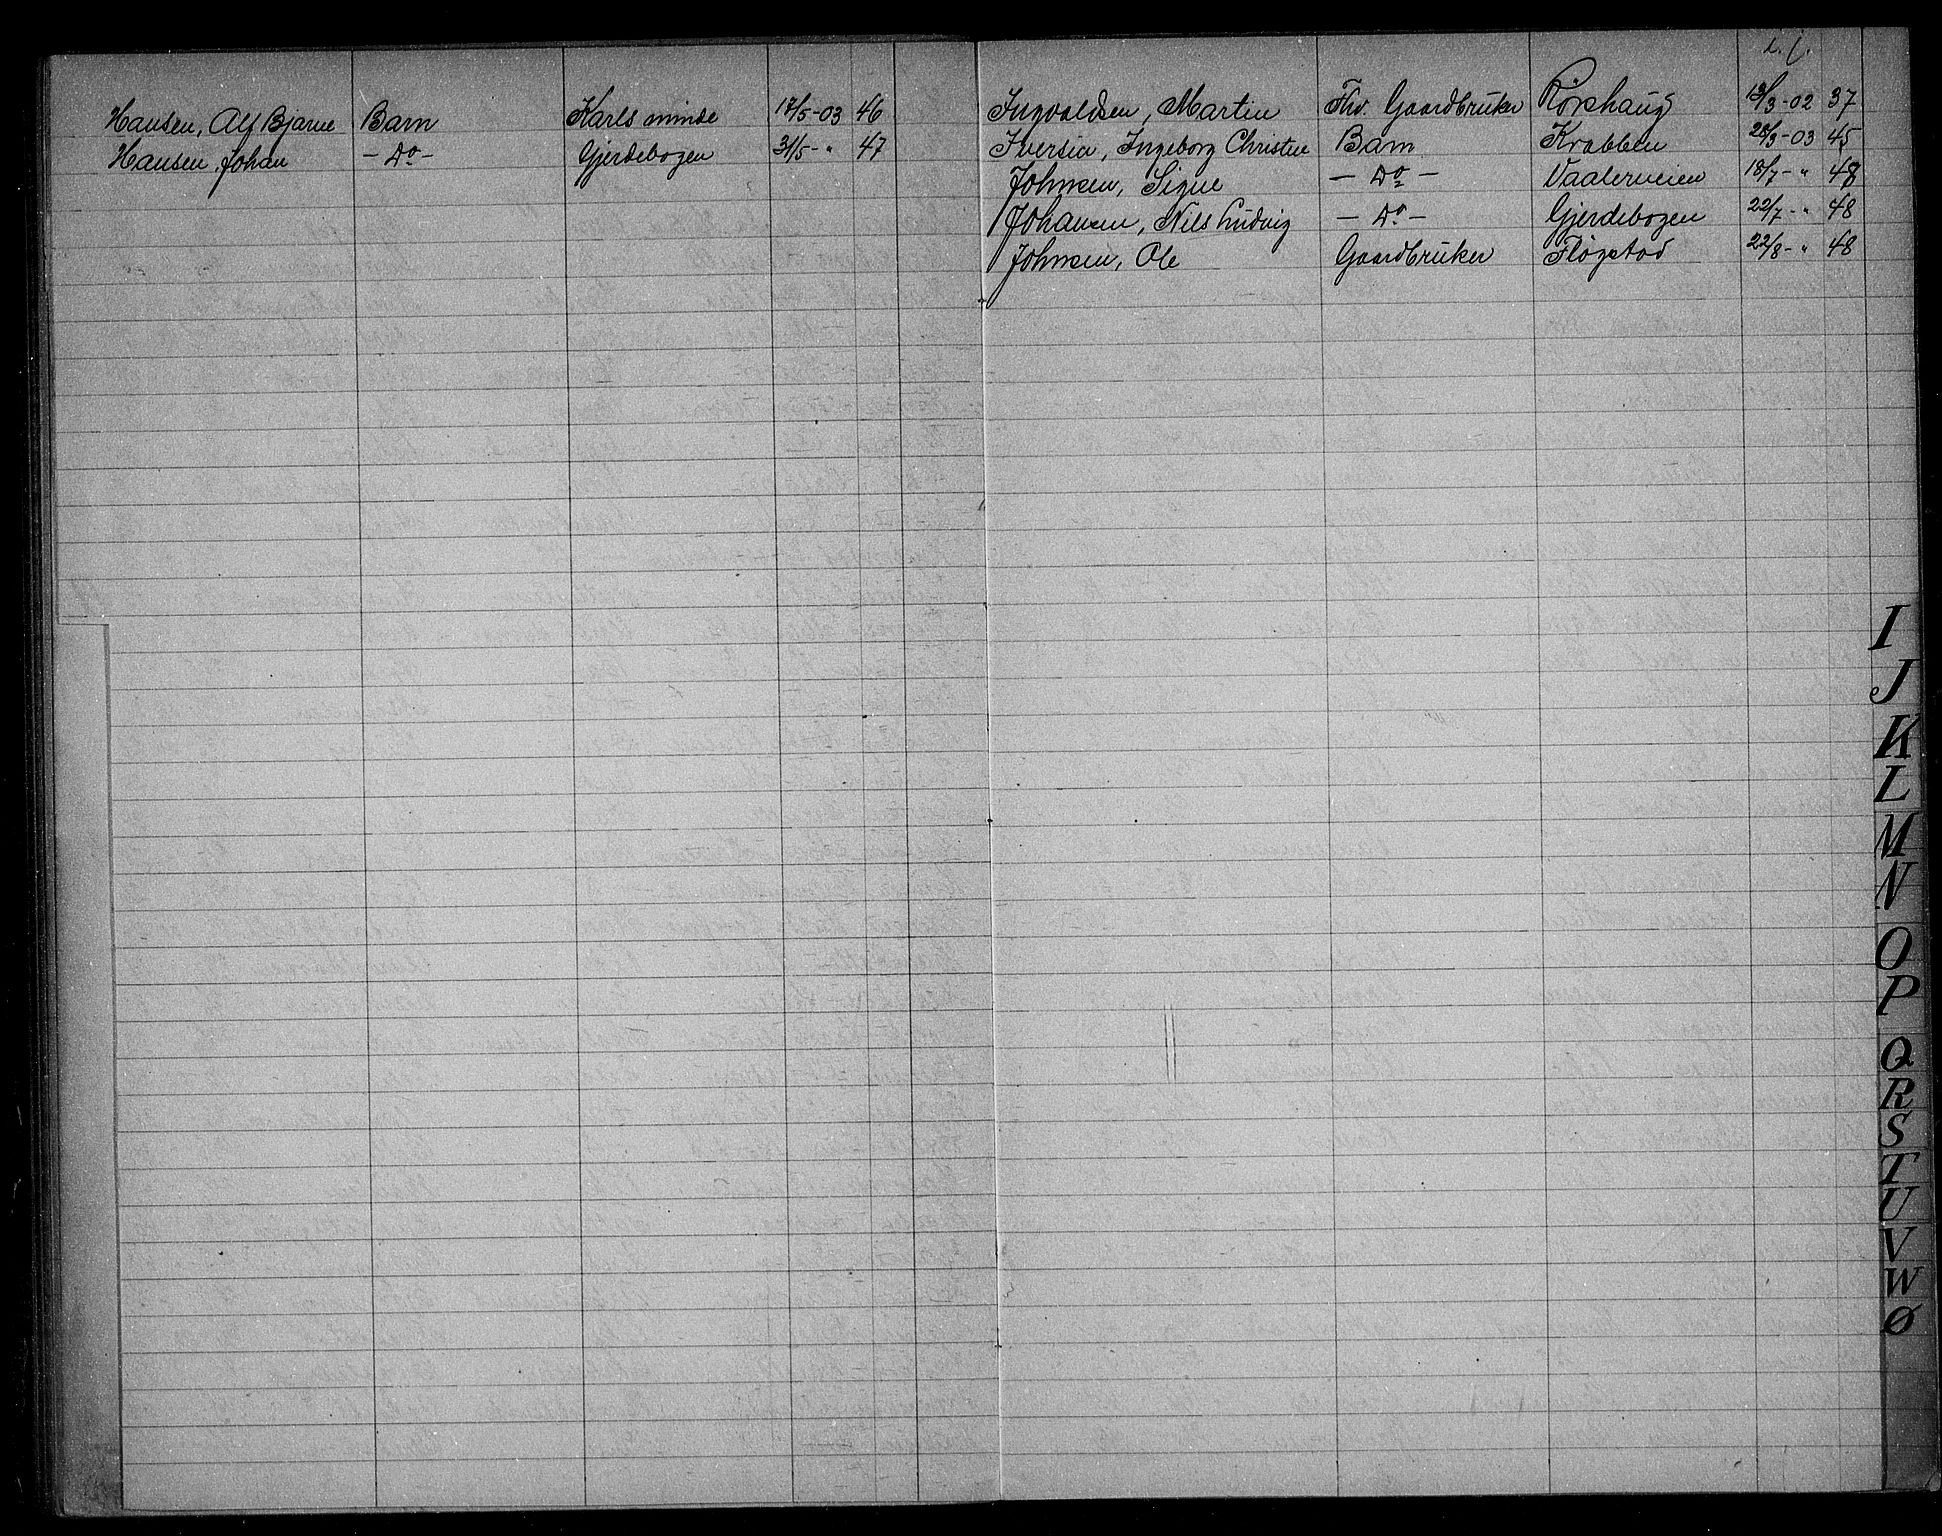 Hansen, Alf Bjarne Barn Karlsminde 17/5-03 46
Hansen, Johan - Do - Gjerdebogen 31/5- " 47
I. J.
Ingvaldsen, Martin Fhv. Gaardbruker Rørshaug 13/3-02 37
Iversen, Ingeborg Christine Barn Krabben 28/3-03 45
Johnsen, Signe - Do - Vaalerveien 18/7- " 48
Johansen, Nils Ludvig - Do - Gjerdebogen 22/7- " 48
Johnsen, Ole Gaardbruker Fløgstad 22/8- " 48
I
J
K
L
M
N
O
P
Q
R
S
T
U
V
W
Ø